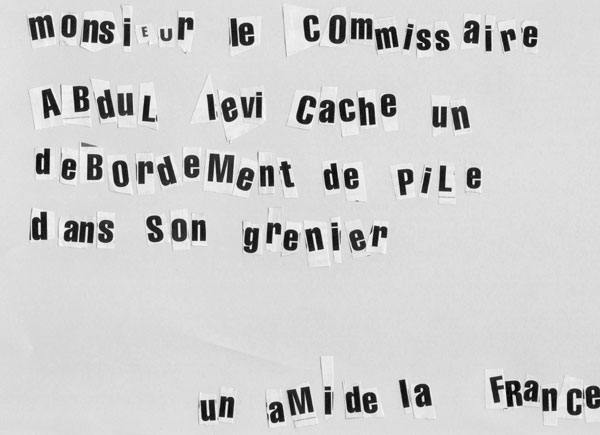 monsiEUr le COmmissaire
ABduL levi Cache un
deBordeMent de PiLe
dans Son grenier
un aMi de la FRanCe